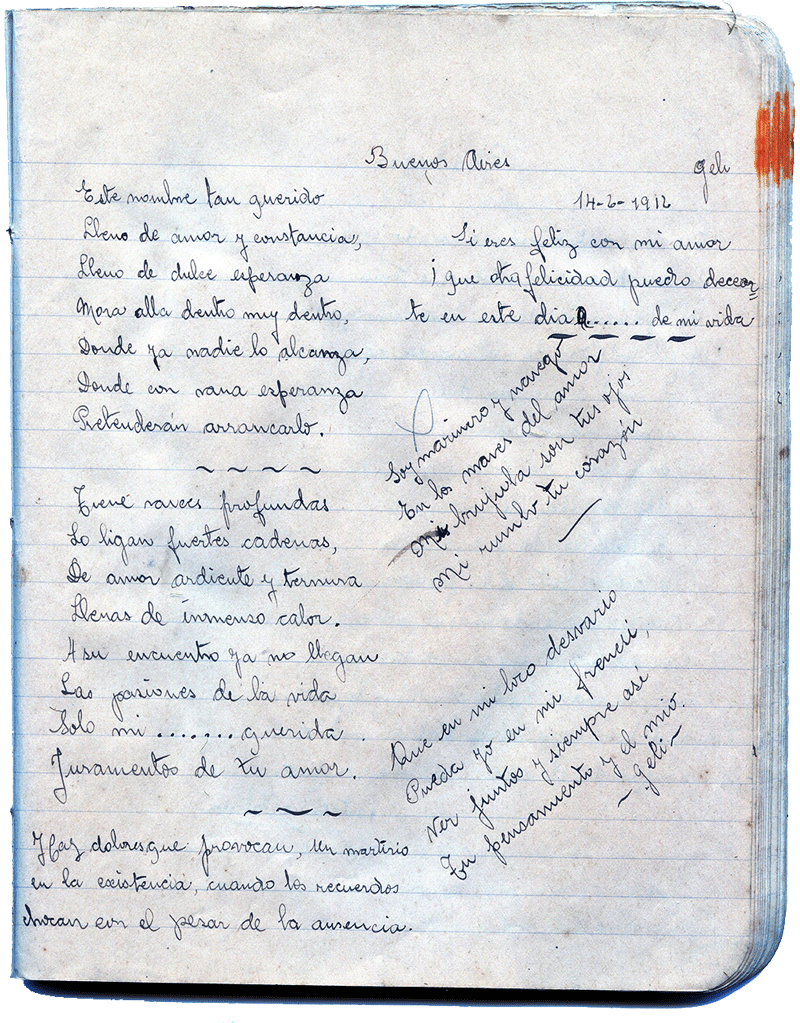 Buenos Aires
geli
14-2-1912
Este nombre tan querido
Lleno de amor y constancia,
Lleno de dulce esperanza
Mora alla dentro muy dentro,
Donde ya nadie lo alcanza,
Donde con vana esperanza
Pretenderán arrancarlo.
Tiene raices profundas
Lo ligan fuertes cadenas,
De amor ardiente y ternura
Llenas de inmenso calor.
A su encuentro ya no llegan
Las pasiones de la vida
Solo mi ........ querida
Juramentos de tu amor.
Hay dolores que provocan, un martirio
en la existencia, cuando los recuerdos
chocan con el pesar de la ausencia.
Si eres feliz con mi amor
¡ que otra felicidad puedo decear=
te en este dia ...... de mi vida
Soy marinero y navego
En los mares del amor
Mi brujula son tus ojos
Mi rumbo tu corazón
Que en mi loco desvario
Pueda yo en mi frenesí,
Ver juntos y siempre asé
Tu pensamiento y el mio.
- geli -